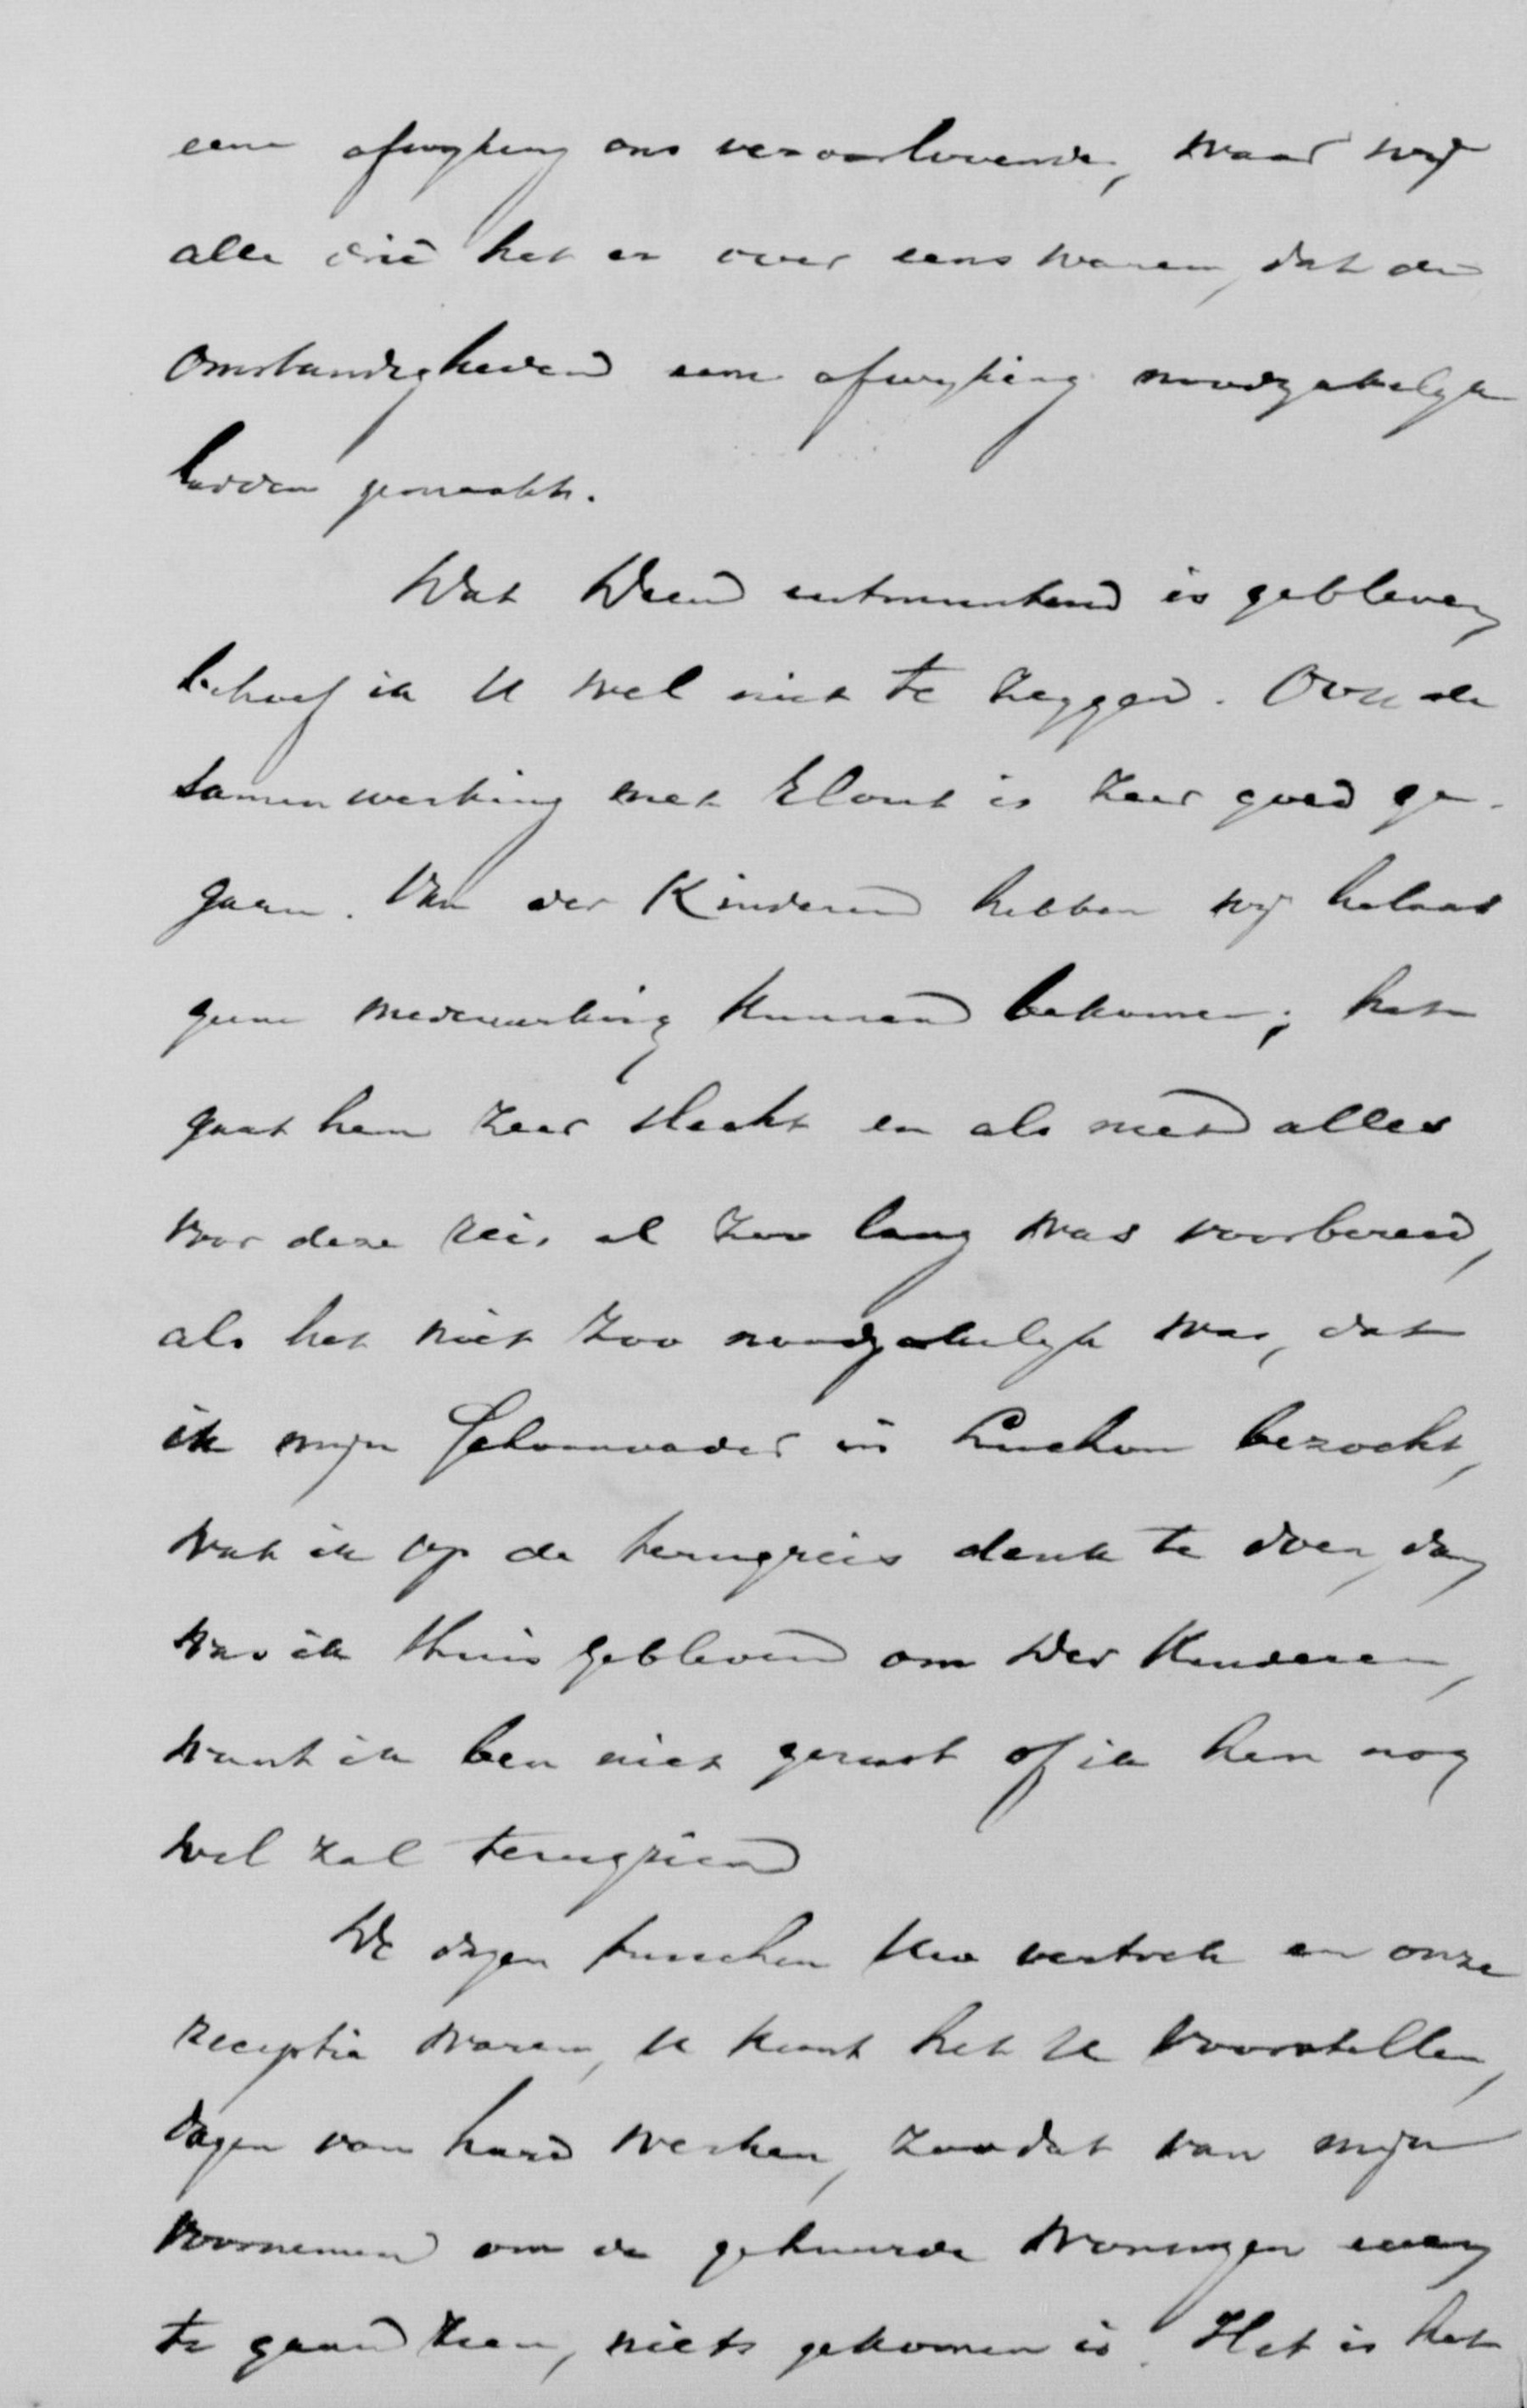 eene afwyking ons veroorlovende, waar wij
alle drie het er over eens waren, dat de
omstandigheden eene afwyking noodzakelyk
hadden gemaakt.
Dat Weend uitmuntend is gebleven,
behoef ik U wel niet te zeggen. Ook de
samenwerking met Elout is zeer goed ge-
gaan. Van der Kinderen hebben wij helaas
geene medewerking kunnen bekomen; het
gaat hem zeer slecht en als niet alles
voor deze reis al zoo lang was voorbereid,
als het niet zoo noodzakelyk was, dat
ik mijn Schoonvader in Luchon bezocht,
wat ik op de terugreis denk te doen, dan
was ik thuis gebleven om Der Kinderen,
want ik ben niet gerust of ik hem nog
wel zal terugzien
De dagen tusschen Uw vertrek en onze
receptie waren, U kunt het U voorstellen,
dagen van hard werken, zoodat van mijn
voornemen om de gehuurde woningen even
te gaan zien, niets gekomen is. Het is het